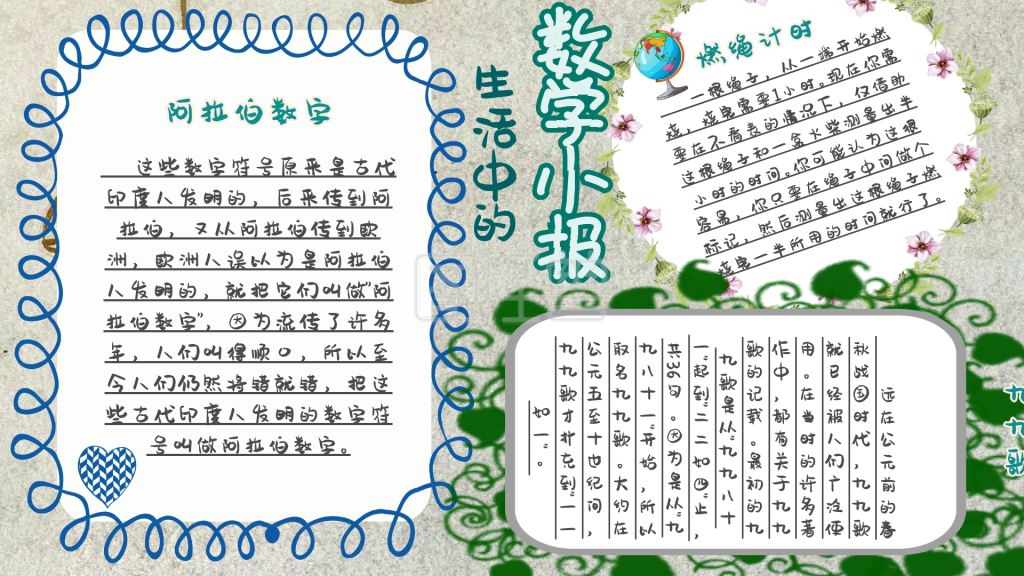 生活中的
数学小报
阿拉伯数字
这些数字符号原来是古代
印度人发明的，后来传到阿
拉伯，又从阿拉伯传到欧
洲，欧洲人误以为是阿拉伯
人发明的，就把它们叫做“阿
拉伯数字”，因为流传了许多
年，人们叫得顺口，所以至
今人们仍然将错就错，把这
些古代印度人发明的数字符
号叫做阿拉伯数字。
燃绳计时
一根绳子，从一端开始燃
烧，烧完需要1小时。现在你需
要在不看表的情况下，仅借助
这根绳子和一盒火柴测量出半
小时的时间。你可能认为这很
容易，你只要在绳子中间做个
标记，然后测量出这根绳子燃
烧完一半所用的时间就行了。
九九歌
远在公元前的春
秋战国时代，九九歌
就已经被人们广泛使
用。在当时的许多著
作中，都有关于九九
歌的记载。最初的九
九歌是从“九九八十
一”起到“二二如四”止，
共36句。因为是从“九
九八十一”开始，所以
取名九九歌。大约在
公元五至十世纪间，
九九歌才扩充到“一一
如一”。